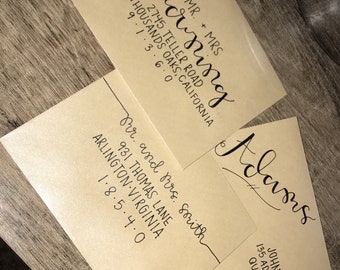 MR + MRS
2745 TELLER ROAD
THOUSANDS OAKS, CALIFORNIA
9 · 1 · 3 · 6 · 0
mr. and mrs. smith
931 THOMAS LANE
ARLINGTON · VIRGINIA
1 · 8 · 5 · 4 · 0
Adams
JOHN
135 A
QU